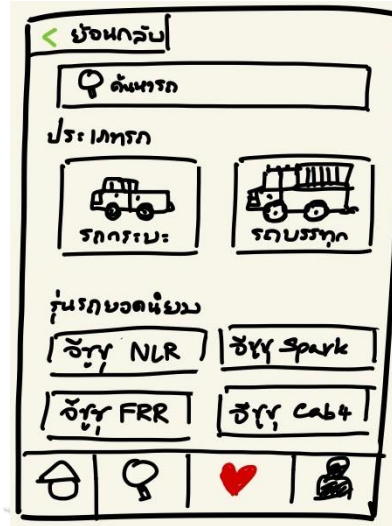 < ย้อนกลับ
ค้นหารถ
ประเภทรถ
รถกระบะ รถบรรทุก
รุ่นรถยอดนิยม
อีซูซุ NLR อีซูซุ Spark
อีซูซุ FRR อีซูซุ Cab4